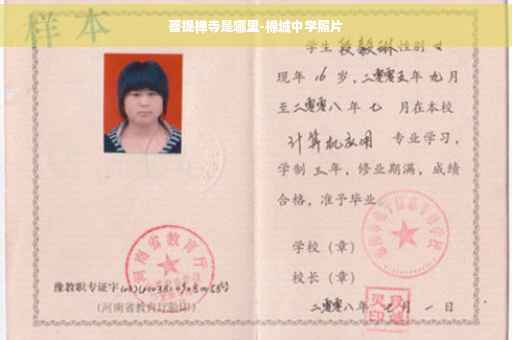 菩提禅寺是哪里-禅城中学照片
样本
学生段毅琳性别女
现年16岁,二零零五年九月
至二零零八年七月在本校
计算机应用 专业学习,
学制三年,修业期满,成绩
合格,准予毕业
学校(章)
校长(章)
二零零八年七月一日
河南省教育厅
豫教职专证字
(河南省教育厅验印)